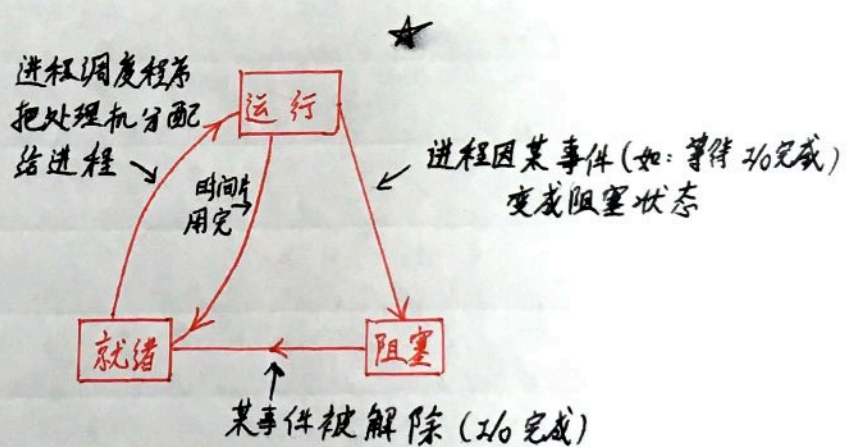 进程调度程序
把处理机分配
给进程
运行
时间片
用完
进程因某事件(如:等待I/O完成)
变成阻塞状态
就绪
阻塞
某事件被解除(I/O完成)